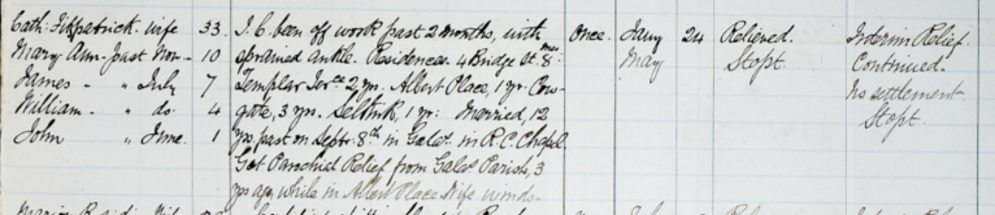 Cath: Fitzpatrick. wife 33. J. C. been off work past 2 months, with once. Jany 24 Relieved. Interim Relief.
Mary Ann - past Nov - 10 sprained ankle. Residences. 4 Bridge St. 8 mos. May Stopt. Continued.
James - " July 7 Templar Ter:ce 2 yrs. Albert Place, 1 yr. Cow- No settlement.
William - " do. 4 gate, 3 yrs. Selkirk, 1 yr: Married, 12 Stopt.
John " June. 1 yrs. past on Septr: 8th in Galas. in R. C. Chapel.
Got Parochial Relief from Galas. Parish, 3
yrs ago, while in Albert Place. Wife winds-